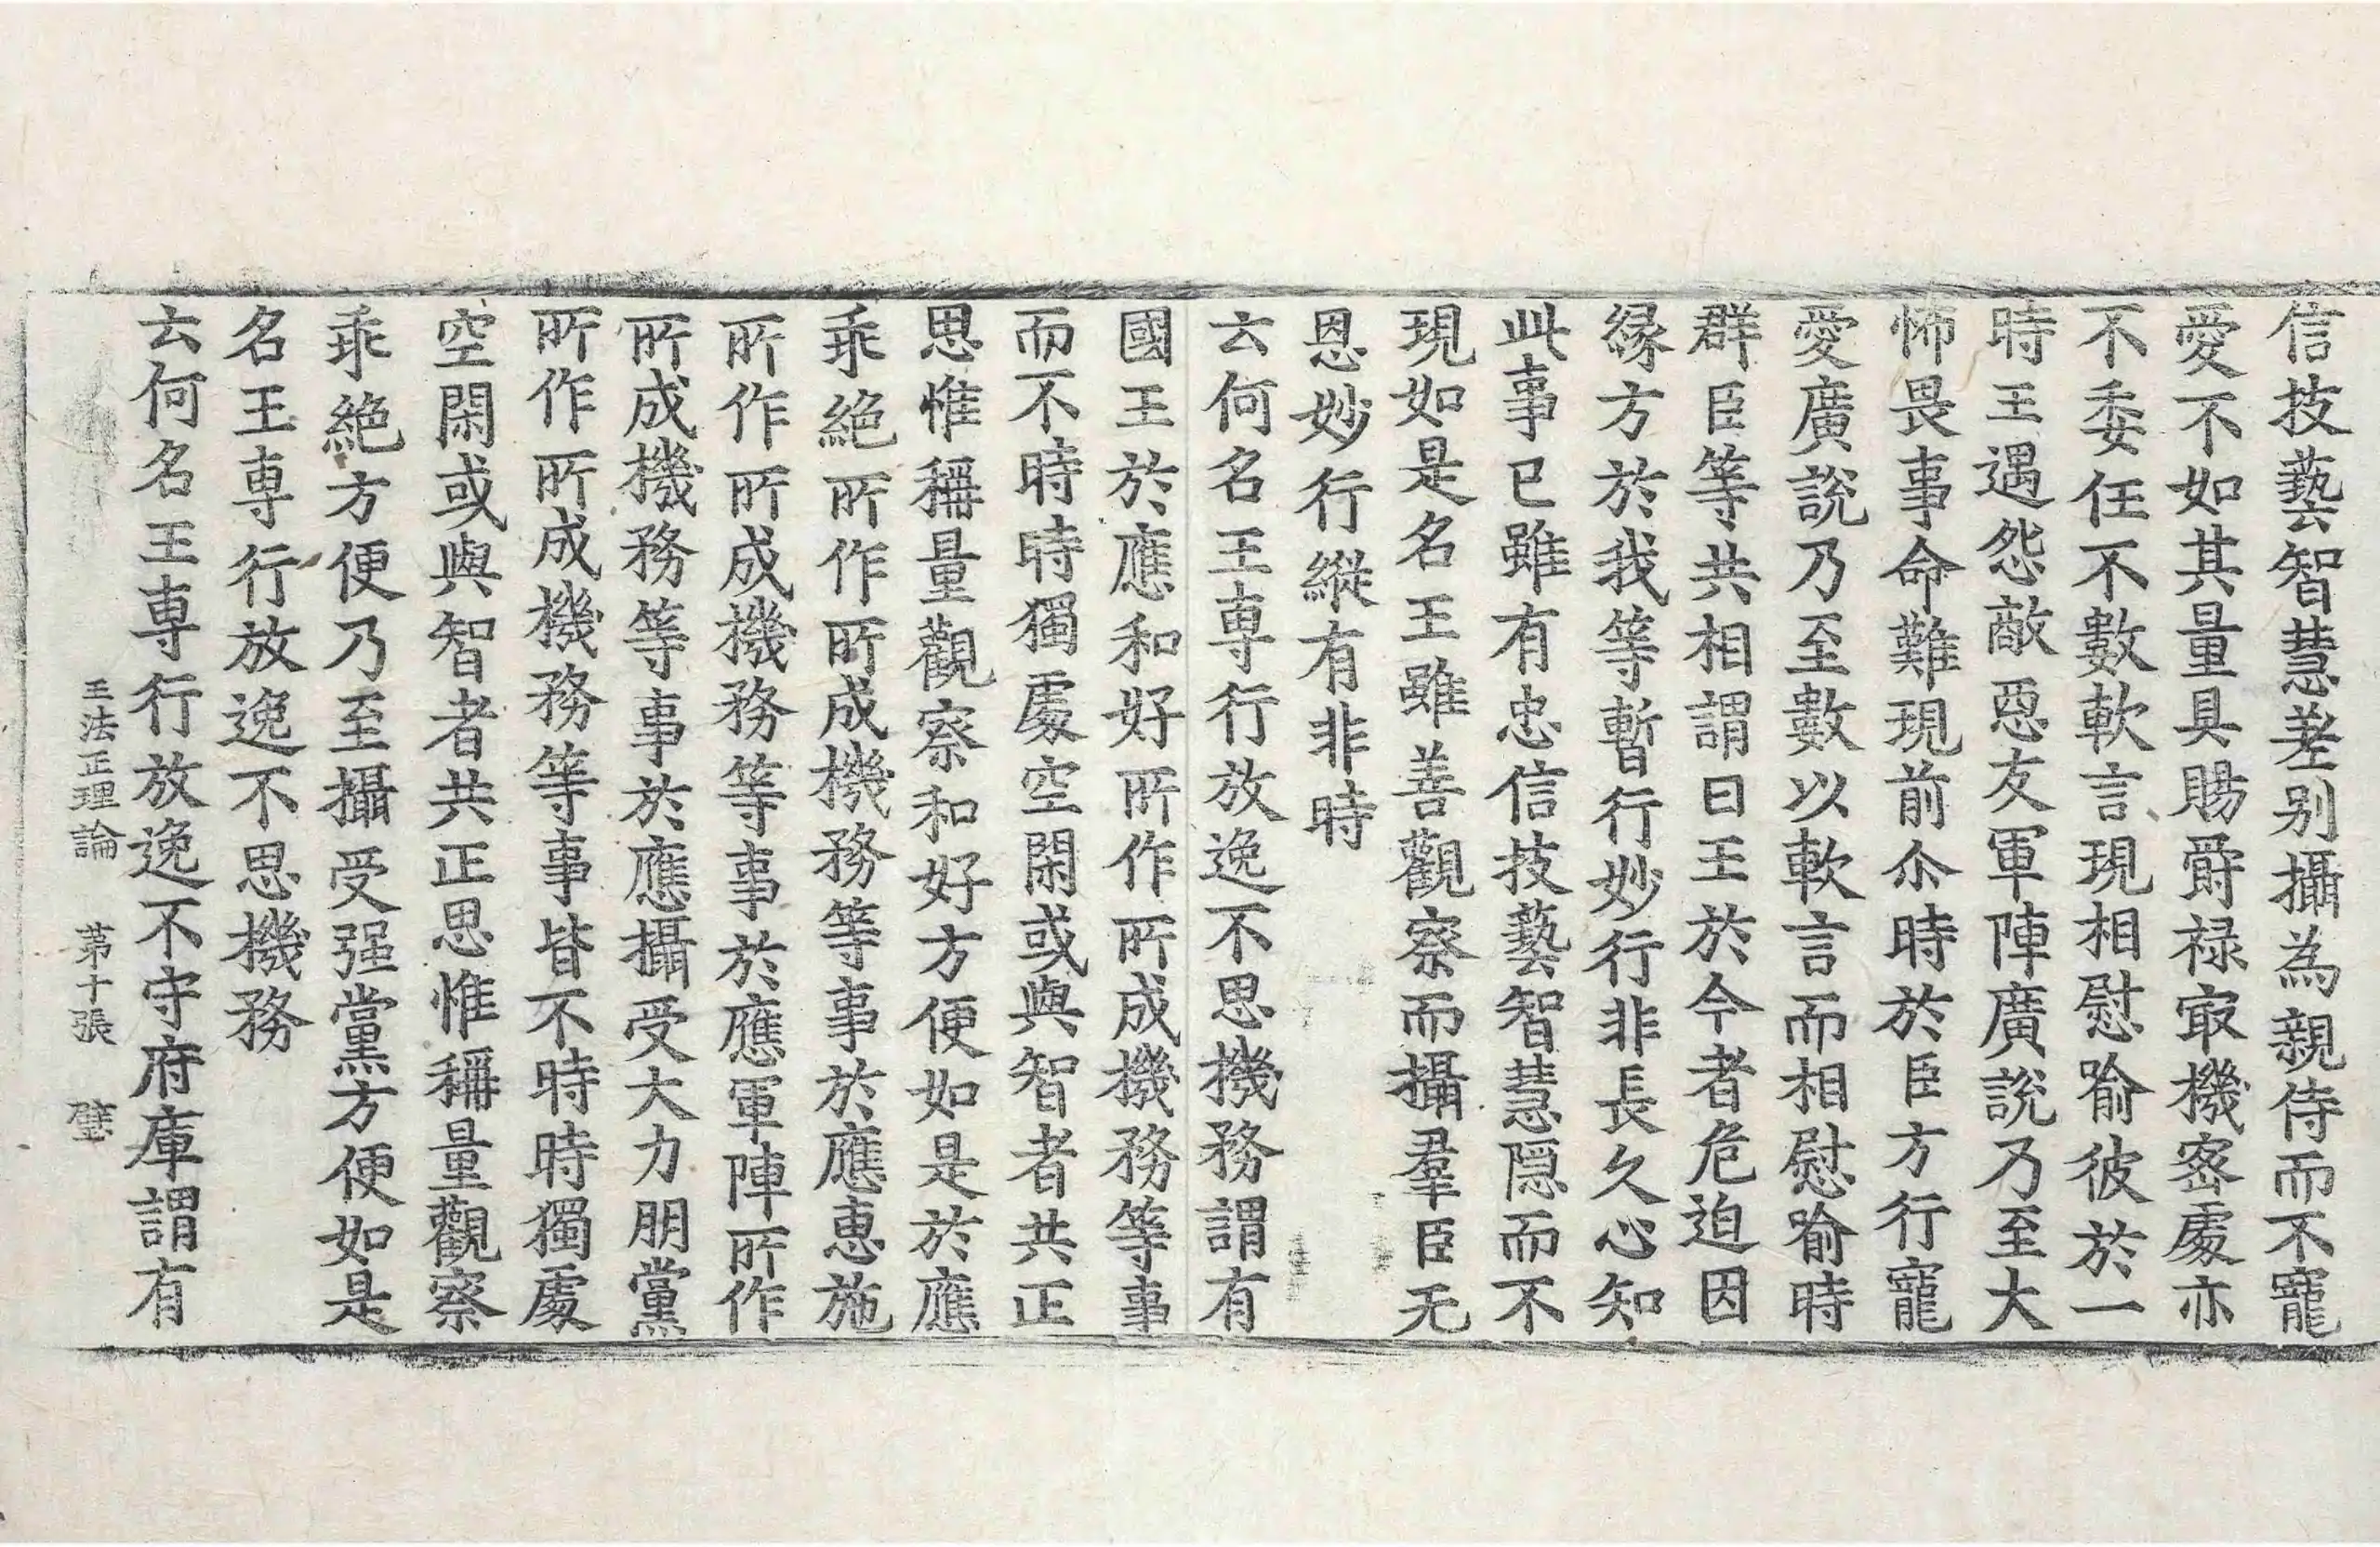 信技藝智慧差别攝為親侍而不寵
愛不如其量具賜爵禄冣機密處亦
不委任不數軟言現相慰喻彼於一
時王遇怨敵惡友軍陣廣說乃至大
怖畏事命難現前尒時於臣方行寵
愛廣說乃至數以軟言而相慰喻時
群臣等共相謂曰王於今者危迫因
縁方於我等暫行妙行非長久心知
此事已雖有忠信技藝智慧隱而不
現如是名王雖善觀察而攝羣臣无
恩妙行縱有非時
云何名王専行放逸不思機務謂有
國王於應和好所作所成機務等事
而不時時獨處空閑或與智者共正
思惟稱量觀察和好方便如是於應
乖絶所作所成機務等事於應惠施
所作所成機務等事於應軍陣所作
所成機務等事於應攝受大力朋黨
所作所成機務等事皆不時時獨處
空閑或與智者共正思惟稱量觀察
乖絶方便乃至攝受强黨方便如是
名王専行放逸不思機務
云何名王専行放逸不守府庫謂有
王法正理論 第十張 璧